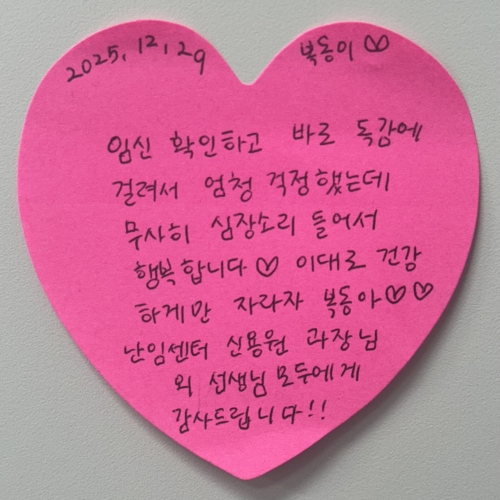 2025, 12, 29 복동이 ♡
임신 확인하고 바로 독감에
걸려서 엄청 걱정했는데
무사히 심장소리 들어서
행복합니다♡ 이대로 건강
하게만 자라자 복동아♡♡
난임센터 신용원 과장님
외 선생님 모두에게
감사드립니다!!